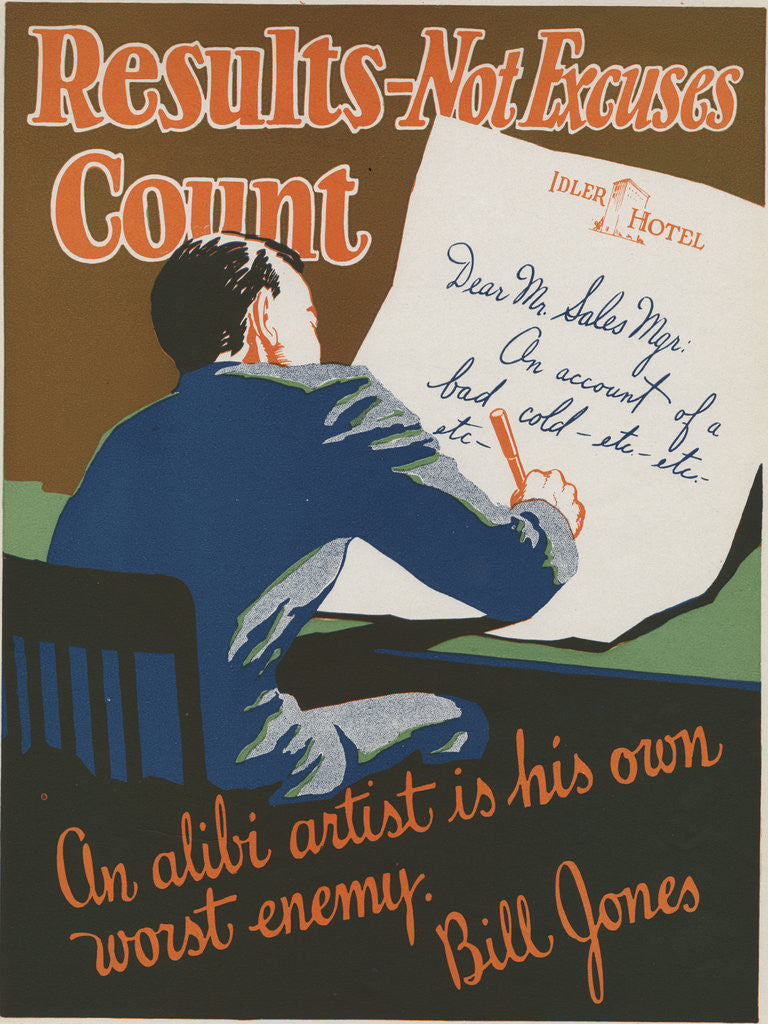 Results-Not Excuses
Count
IDLER HOTEL
Dear Mr. Sales Mgr:
On account of a
bad cold-etc-etc-
etc-
An alibi artist is his own
worst enemy.
Bill Jones